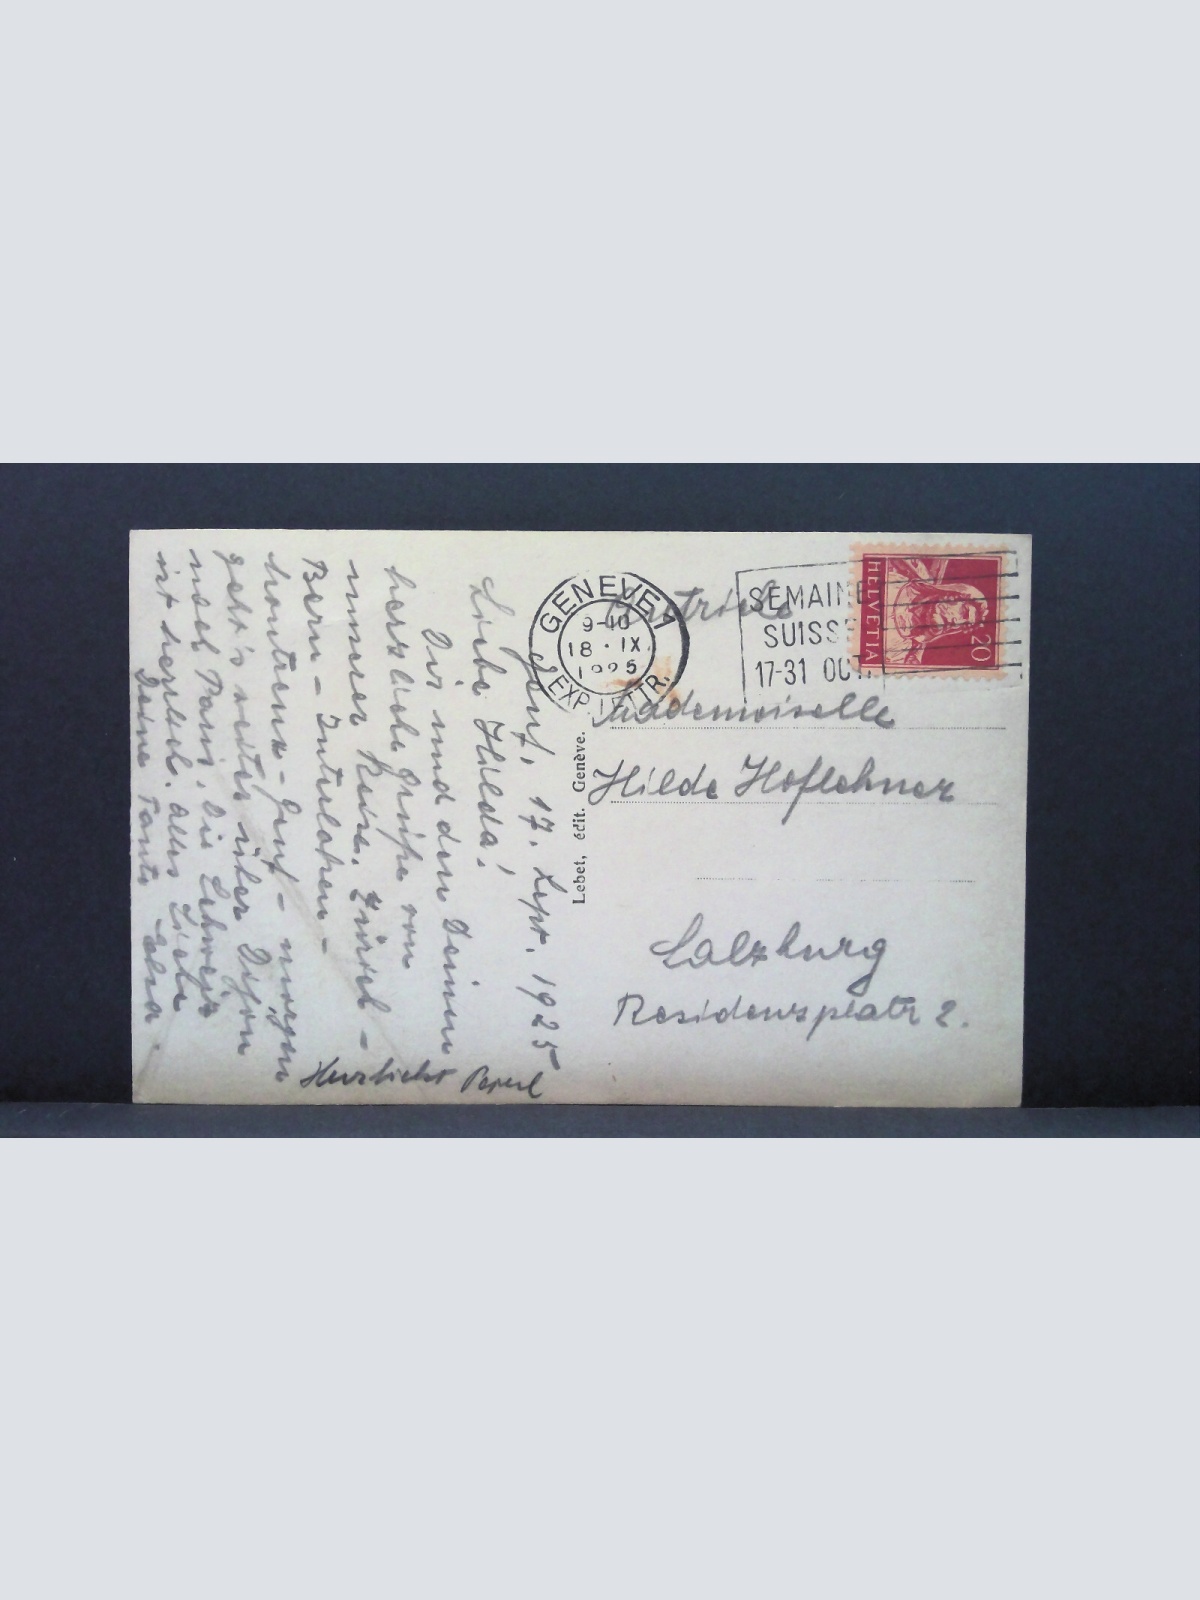 Genf, 17. Sept. 1925
Liebe Hilda!
Dir und den Deinen
herzliche Grüße von
unserer Reise. Zürich –
Bern – Interlaken –
Montreux – Genf – morgen
geht's weiter über Dijon
nach Paris. Die Schweiz
ist herrlich. Alles Liebe
Deine Tante
Herzlichst
Lebet, édit. Genève.
GENÈVE 1
9-10
18 · IX.
1925
EXP. LETTR.
SEMAINE
SUISSE
17-31 OCT.
HELVETIA
20
Autriche
Mademoiselle
Hilde Hoflehner
Salzburg
Residenzplatz 2.